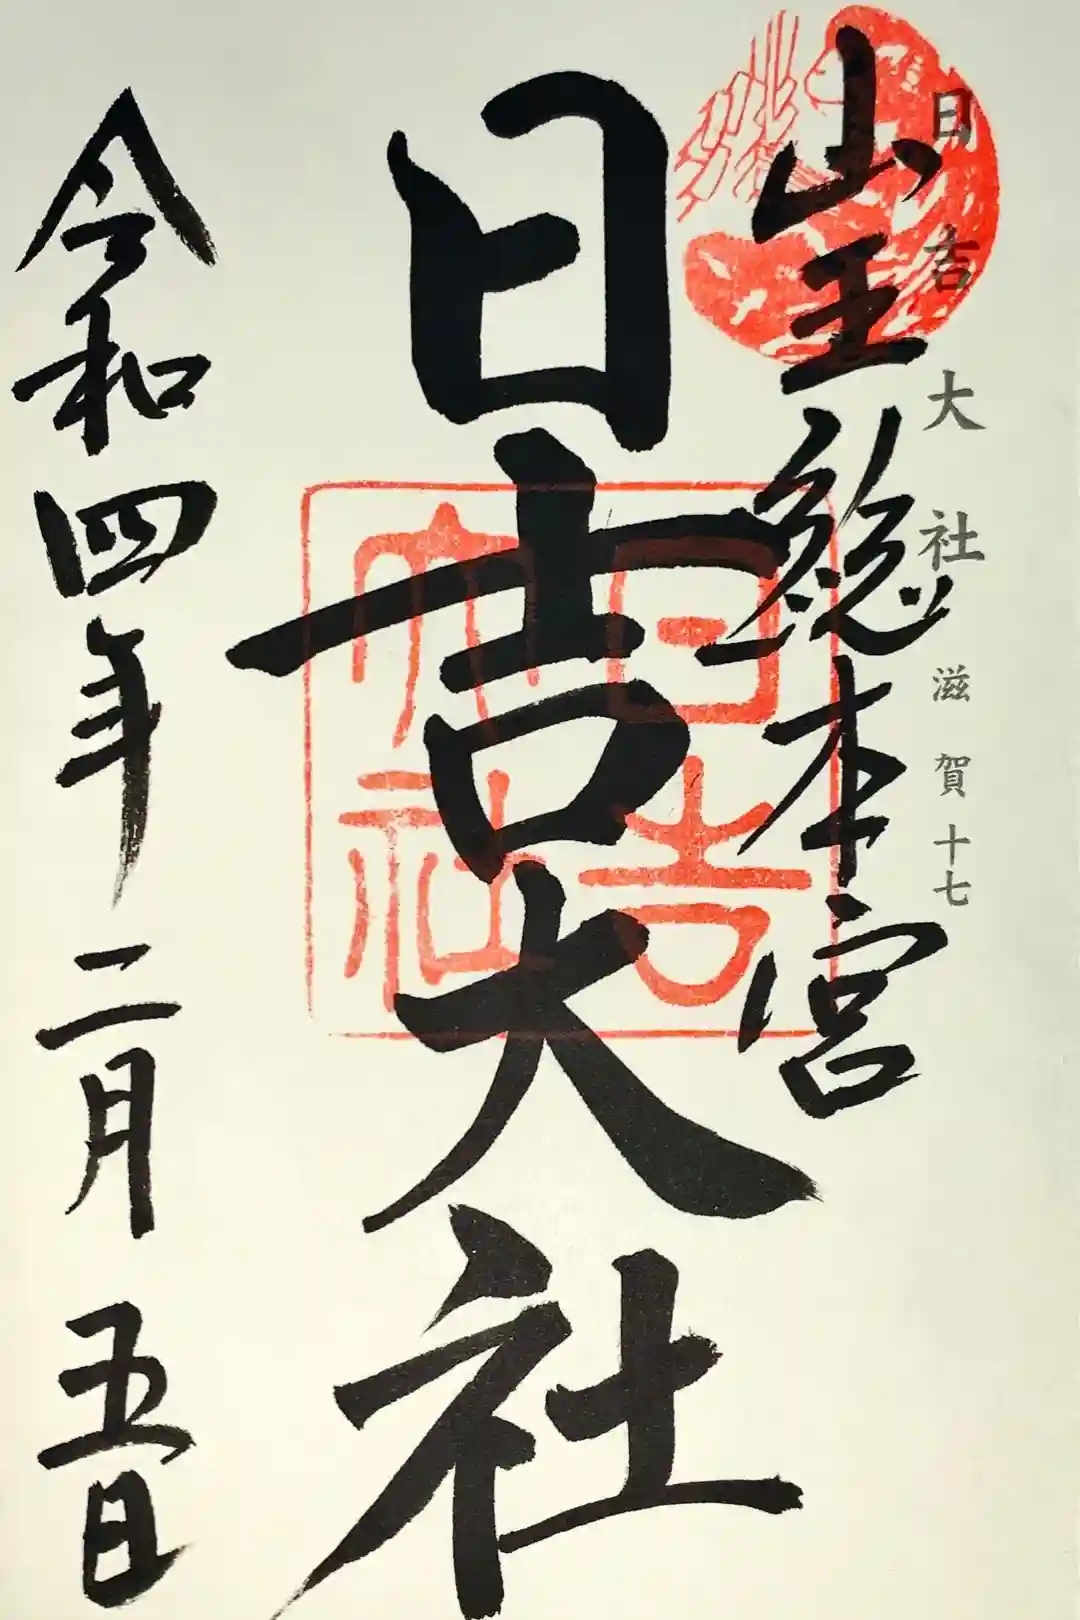 日吉大社 滋賀十七
山王総本宮
日吉大社
日吉
大社
令和四年二月五日